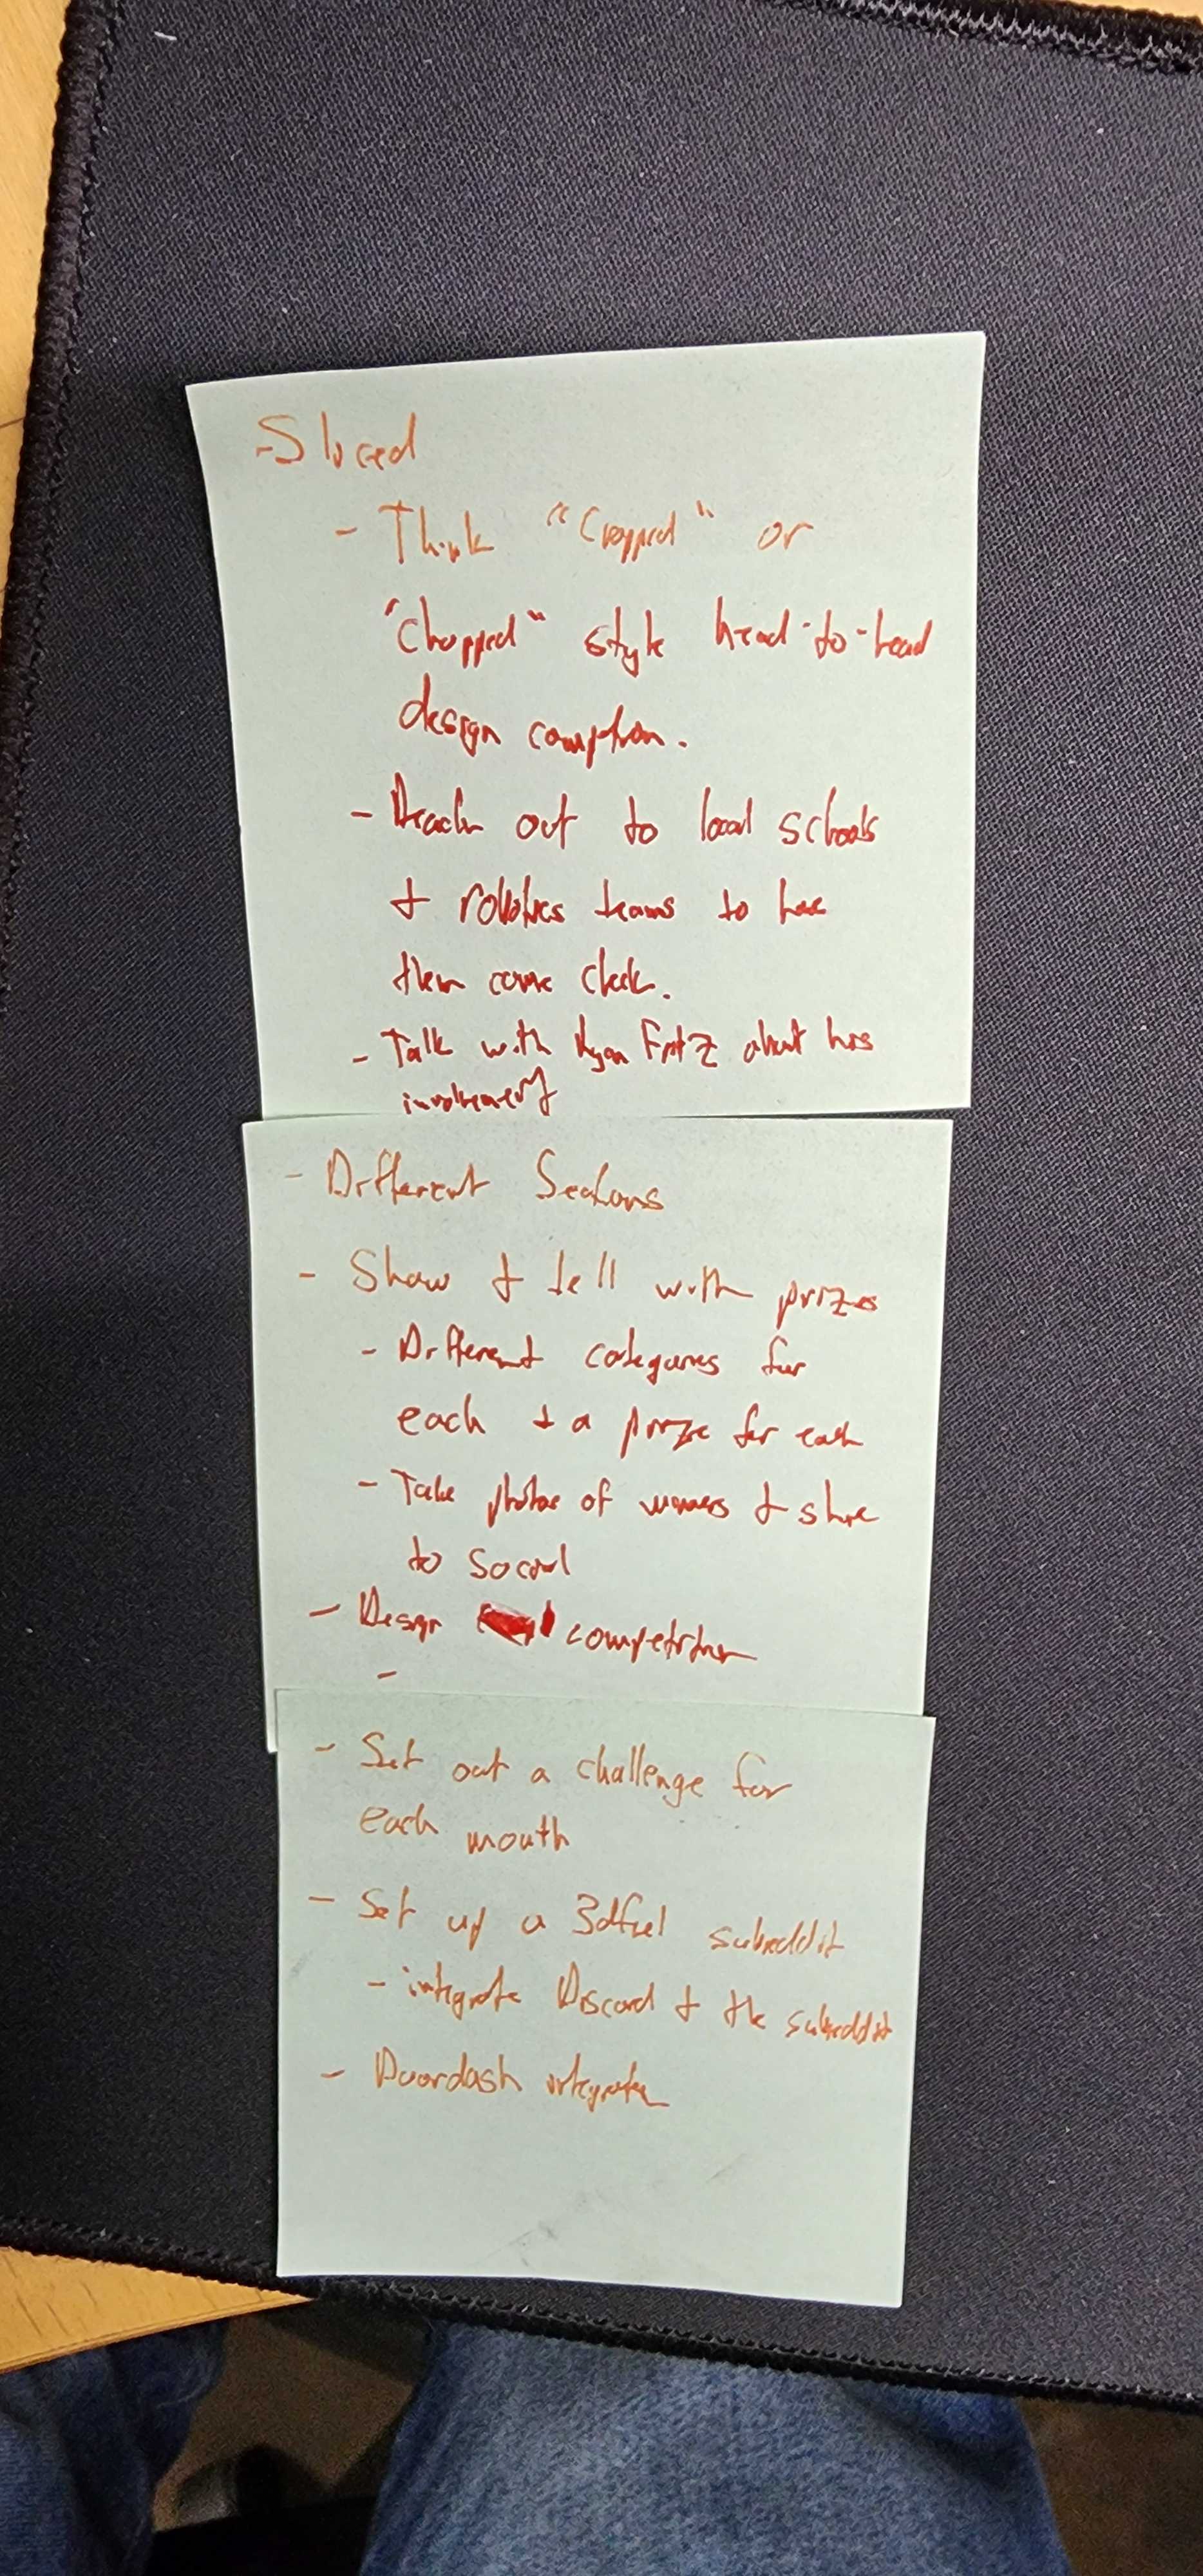 - Sliced
- Think "Cropped" or
"Chopped" style head-to-head
design
- Reach out to local schools
+ robotics teams to have
them come check.
- Talk with Ryan about his
involvement
- Different
- Show + tell with prizes
- Different categories for
each + a prize for each
- Take photos of winners + share
to social
- Design competition
-
- Set out a challenge for
each month
- Set up a 3dfuel subreddit
- integrate Discord + the subreddit
- Doordash integration